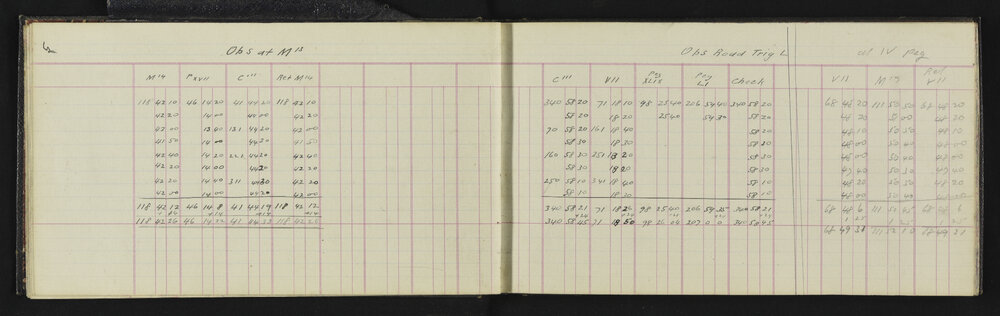 Obs at M 13
M 14 P XVII C''' Ret M 14
118 42 10 46 14 20 41 44 20 118 42 10
42 20 14 00 44 00 42 20
42 00 13 40 131 44 20 42 00
41 50 14 00 44 30 41 50
42 40 14 20 221 44 20 42 40
42 20 14 00 44 20 42 20
42 20 14 40 311 44 30 42 20
42 00 14 00 44 20 42 00
118 42 12 46 14 8 41 44 19 118 42 12
+14 +14 +14 +14
118 42 26 46 14 22 41 44 33 118 42 26
Obs Road Trig L
C''' VII Peg XLIX Peg LI Check
340 58 20 71 18 10 98 25 40 206 59 40 340 58 20
58 20 18 20 25 40 59 30 58 20
70 58 20 161 18 40 58 20
58 30 18 30 58 30
160 58 30 251 18 20 58 30
58 30 18 20 58 30
250 58 10 341 18 40 58 10
58 10 18 30 58 10
340 58 21 71 18 26 98 25 40 206 59 35 340 58 21
+24 +24 +24 +24
340 58 45 71 18 50 98 26 04 207 0 0 340 58 45
at IV Peg
VII M 13 Ret VII
68 48 20 111 50 50 68 48 20
48 20 48 20
48 10 50 50 48 10
48 00 50 40 48 00
48 00 50 40 48 00
47 40 50 40 47 40
48 20 50 30 48 20
48 00 48 00
68 48 6 111 68 48 6
68 49 31 111 52 10 68 49 31